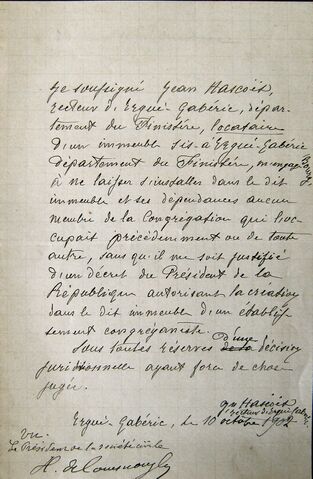 Je soussigné Jean Hascoët,
recteur d'Ergué-Gabéric, dépar-
tement du Finistère, locataire
d'un immeuble sis à Ergué-Gabéric Bourg
département du Finistère, m'engage
à ne laisser s'installer dans le dit
immeuble et ses dépendances aucun
membre de la Congrégation qui l'oc-
cupait précédemment ou de toute
autre, sans qu'il me soit justifié
d'un décret du Président de la
République autorisant la création
dans le dit immeuble d'un établis-
sement congréganiste.
Sous toutes réserves d'une décision
juridictionnelle ayant force de chose
jugée.
Ergué-Gabéric, le 10 octobre 1902
Hascoët
recteur d'Ergué-Gabéric
Vu.
Le Président de la société civile